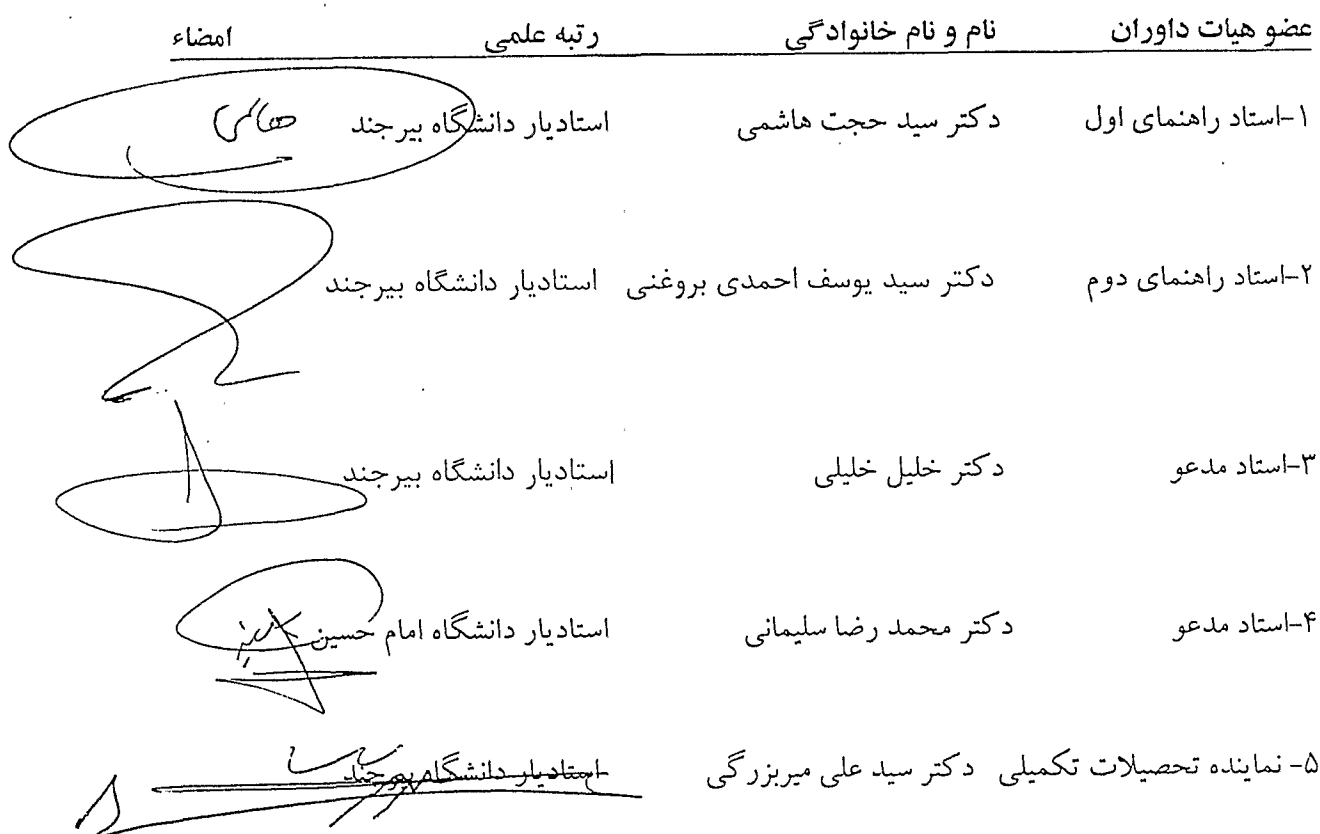 عضو هیات داوران نام و نام خانوادگی رتبه علمی امضاء
۱-استاد راهنمای اول دکتر سید حجت هاشمی استادیار دانشگاه بیرجند
۲-استاد راهنمای دوم دکتر سید یوسف احمدی بروغنی استادیار دانشگاه بیرجند
۳-استاد مدعو دکتر خلیل خلیلی استادیار دانشگاه بیرجند
۴-استاد مدعو دکتر محمد رضا سلیمانی استادیار دانشگاه امام حسین
۵- نماینده تحصیلات تکمیلی دکتر سید علی میربزرگی استادیار دانشگاه بیرجند